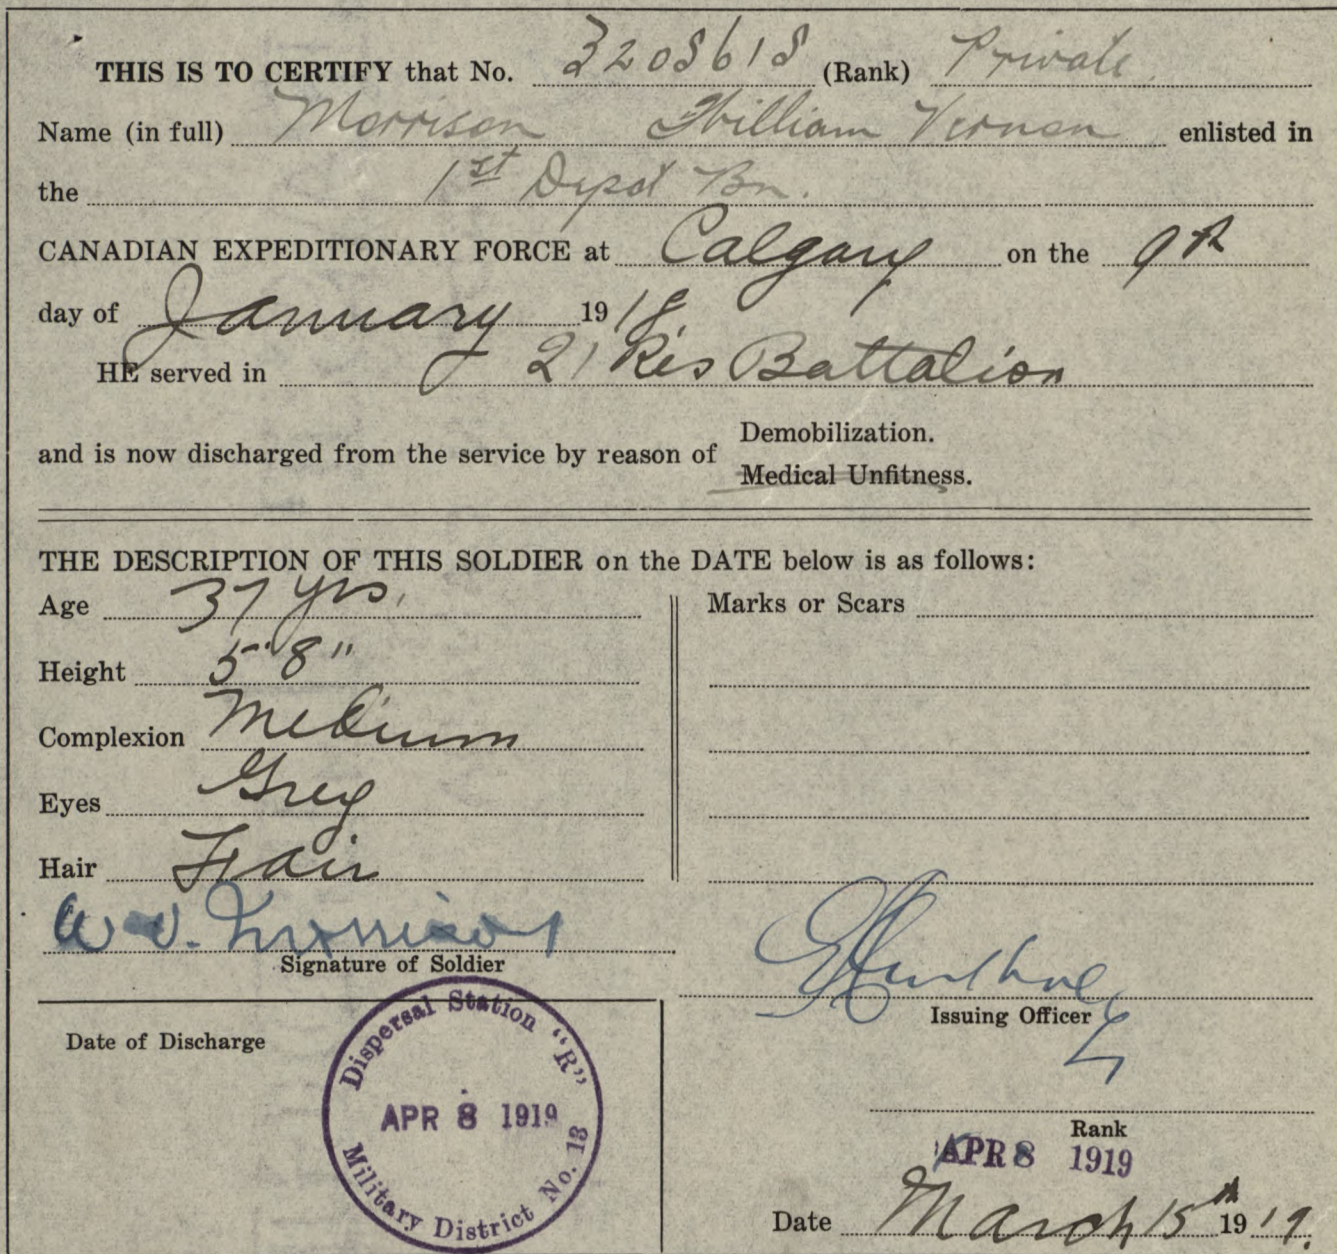 THIS IS TO CERTIFY that No. 3208618 (Rank) Private
Name (in full) Morrison William Vernon enlisted in
the 1st Depot Bn.
CANADIAN EXPEDITIONARY FORCE at Calgary on the 9th
day of January 1918
HE served in 21 Res Battalion
and is now discharged from the service by reason of Demobilization.
Medical Unfitness.
THE DESCRIPTION OF THIS SOLDIER on the DATE below is as follows:
Age 37 yrs. Marks or Scars
Height 5' 8"
Complexion Medium
Eyes Grey
Hair Fair
W. V. Morrison
Signature of Soldier
Issuing Officer
Date of Discharge
Dispersal Station "R"
APR 8 1919
Military District No. 13
Rank
APR 8 1919
Date March 15th 1919.